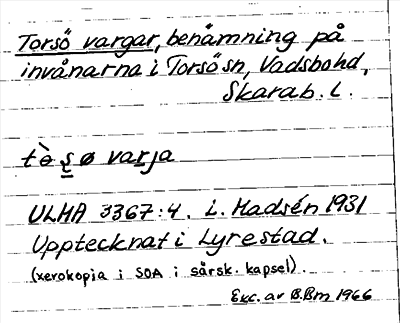 Torsö vargar, benämning på
invånarna i Torsö sn, Vadsbo hd,
Skarab. l.
tò̱s̱ ø varja
ULMA 3367:4. L. Madsén 1931
Upptecknat i Lyrestad.
(xerokopia i SOA i särsk. kapsel).
Exc. av B.Bm 1966